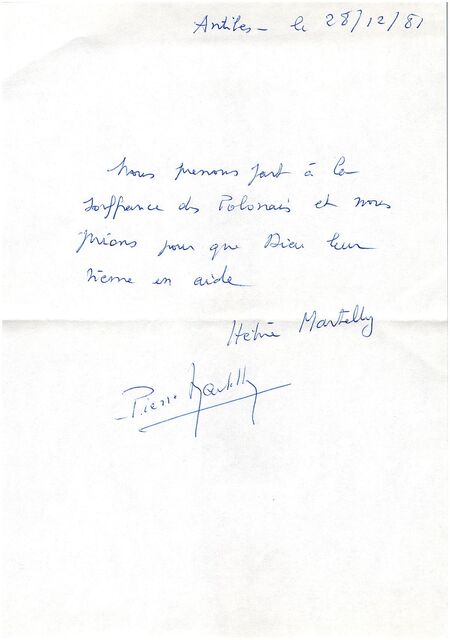 Antibes - le 28/12/81
Nous prenons part à la
souffrance des Polonais et nous
prions pour que Dieu leur
vienne en aide
Hélène Martelly
Pierre Martelly